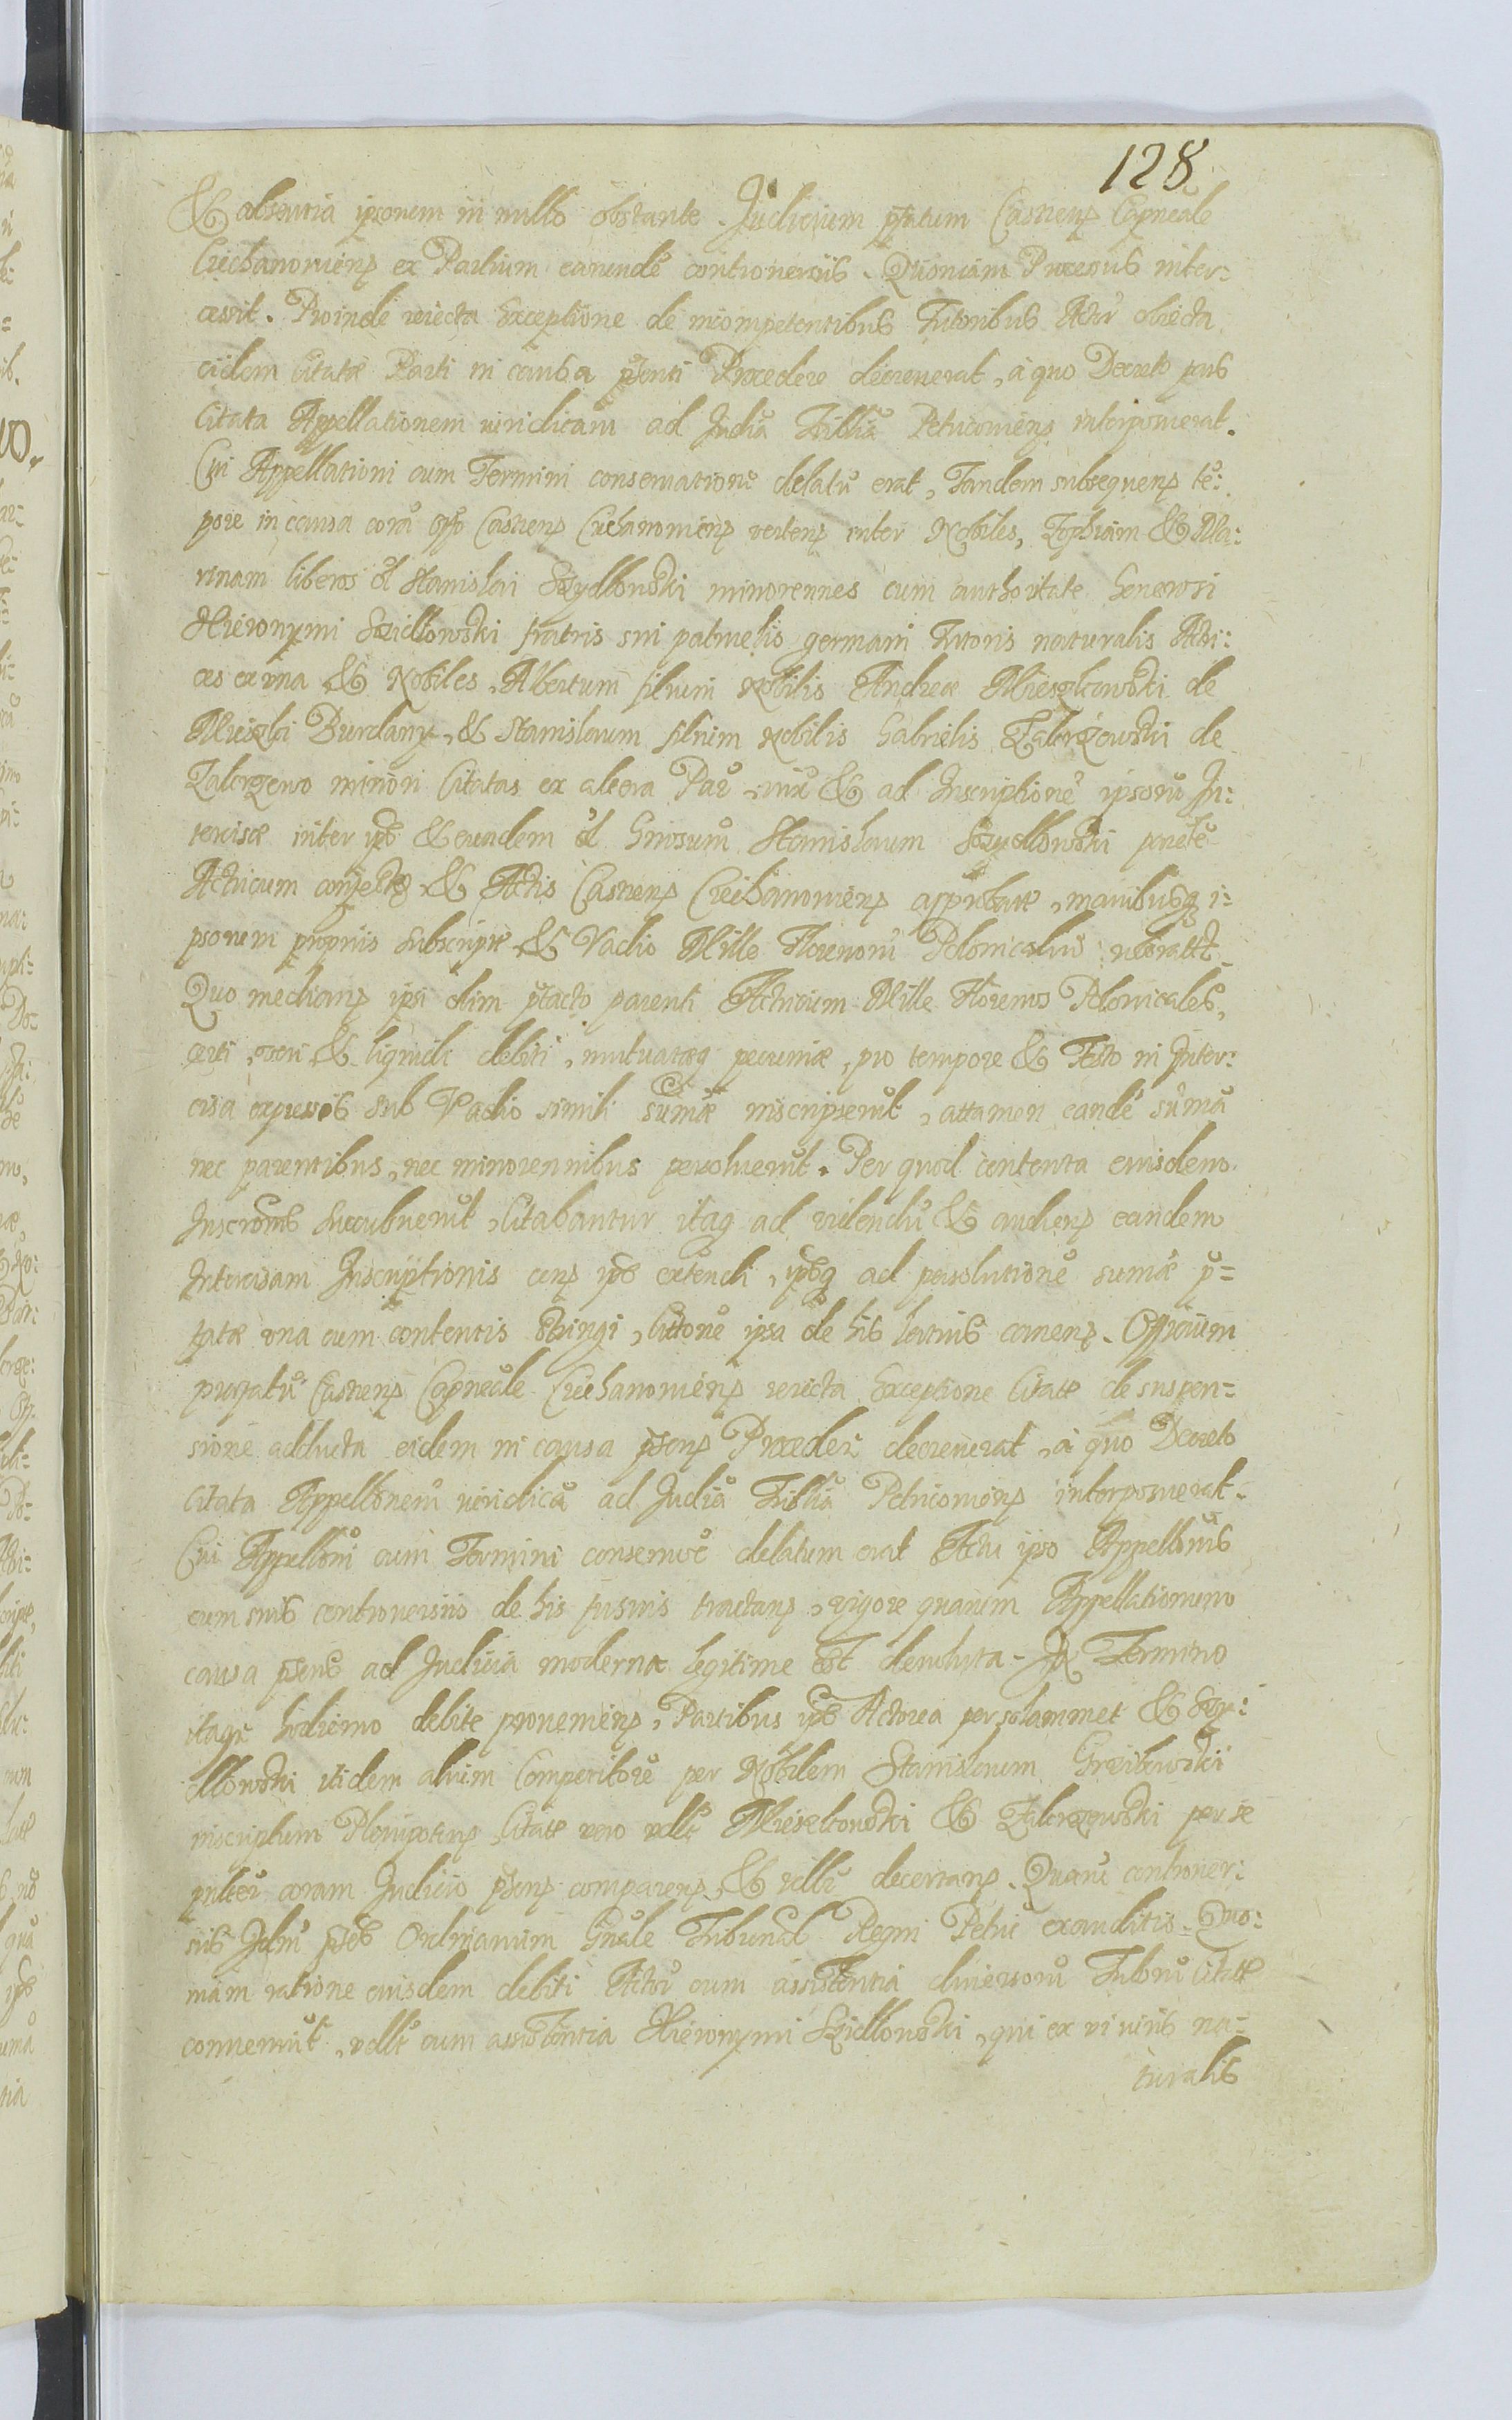 128
& absentia ipsorum in nullo obstante. Judicium pntatum Castren Capneale
Ciechanovien ex Partium earunde controversiis. Quoniam Processus inter:
cessit. Proinde reiecta Exceptione de incompetentibus Tutoribus Actor obiecta
eidem Citatæ Parti in causa pnti Procedere decreverat, à quo Decreto pars
Citata Appellationem viridicam ad Judia Tribulia Petricovien interposuerat.
Cui Appellationi cum Termini conservatione delatu erat, Tandem subsequen te:
pore in causa coru offo Castren Ciechanovien verten inter Nobiles, Zophiam & Ma:
rinam liberos ol Stanislai Szydlowski minorennes cum authoritate Generosi
Hieronymi Szidlowski fratris sui patruelis germani Tutoris naturalis Actri:
ces ex una & Nobiles, Albertum filium Nobilis Andreæ Mieszkowski de
Mieszki Bundany, & Stanislaum filium Nobilis Gabrielis Zakrzewski de
Zakrzewo minori Citatas ex altera Par & ad Inscriptione ipsoru In:
tercisæ inter ipos & eundem ol Gnrosum Stanislaum Szydlowski parete
Actricum & Actis Castren Ciechanovien approbatæ, manibusq i:
psorum propriis subscriptæ & Vadio Mille Florenoru Polonicaliu roboratæ.
Quo median ipsi olim ptacto parenti Actricum Mille Florenos Polonicales,
certi, veri & liquidi debiti, mutuatæq pecuniæ, pro tempore & Festo in Inter:
cisa expressis sub Vadio simili sumæ inscripserut, attamen eande sumã
nec parentibus, nec minorennibus persolverut. Per quod contenta eiusdem
Inscronis succubuerut, Citabantur itaq ad videndu & audien eandem
Intercisam Inscriptionis cen ipos extendi, iposq ad persolutione sumæ p=
tatæ una cum contentis stringi, Cittone ipsa de his latius canen. Officium
prætatu Castren Capneale Ciechanovien reiecta Exceptione Citatæ de suspen=
sione adducta eidem in causa pnsen Procedere decreverat, à quo Decreto
citata Appellonem viridica ad Judia Triblia Petricovien interposuerat.
Cui Appelloni cum Termini conservoe delatum erat Actu ipso Appellonis
cum suis controversiis de his fusius tractan, vigore quarum Appellationum
causa pnsens ad Judicia moderna legitime est devoluta. In Termino
itaque hodierno debite provenien, Partibus ipis Actorea per solammet & Szy:
dlowski itidem alium Comperitore per Nobilem Stanislaum Grzibowski
inscriptum Plenipoten, Citatæ vero nlli Mieszkowski & Zakrzewski per se
pnlter coram Judicio pnsen comparen, & nlli decertan. Quaru controver:
siis Jdm pns Ordinarium Gnale Tribunal Regni Petric exauditis. Quo:
niam ratione eiusdem debiti Actor cum assistentia diversoru Tutoru Citatæ
convenerut, nlli cum assistentia Hieronymi Szidlowski, qui ex vi iuris na=
turalis